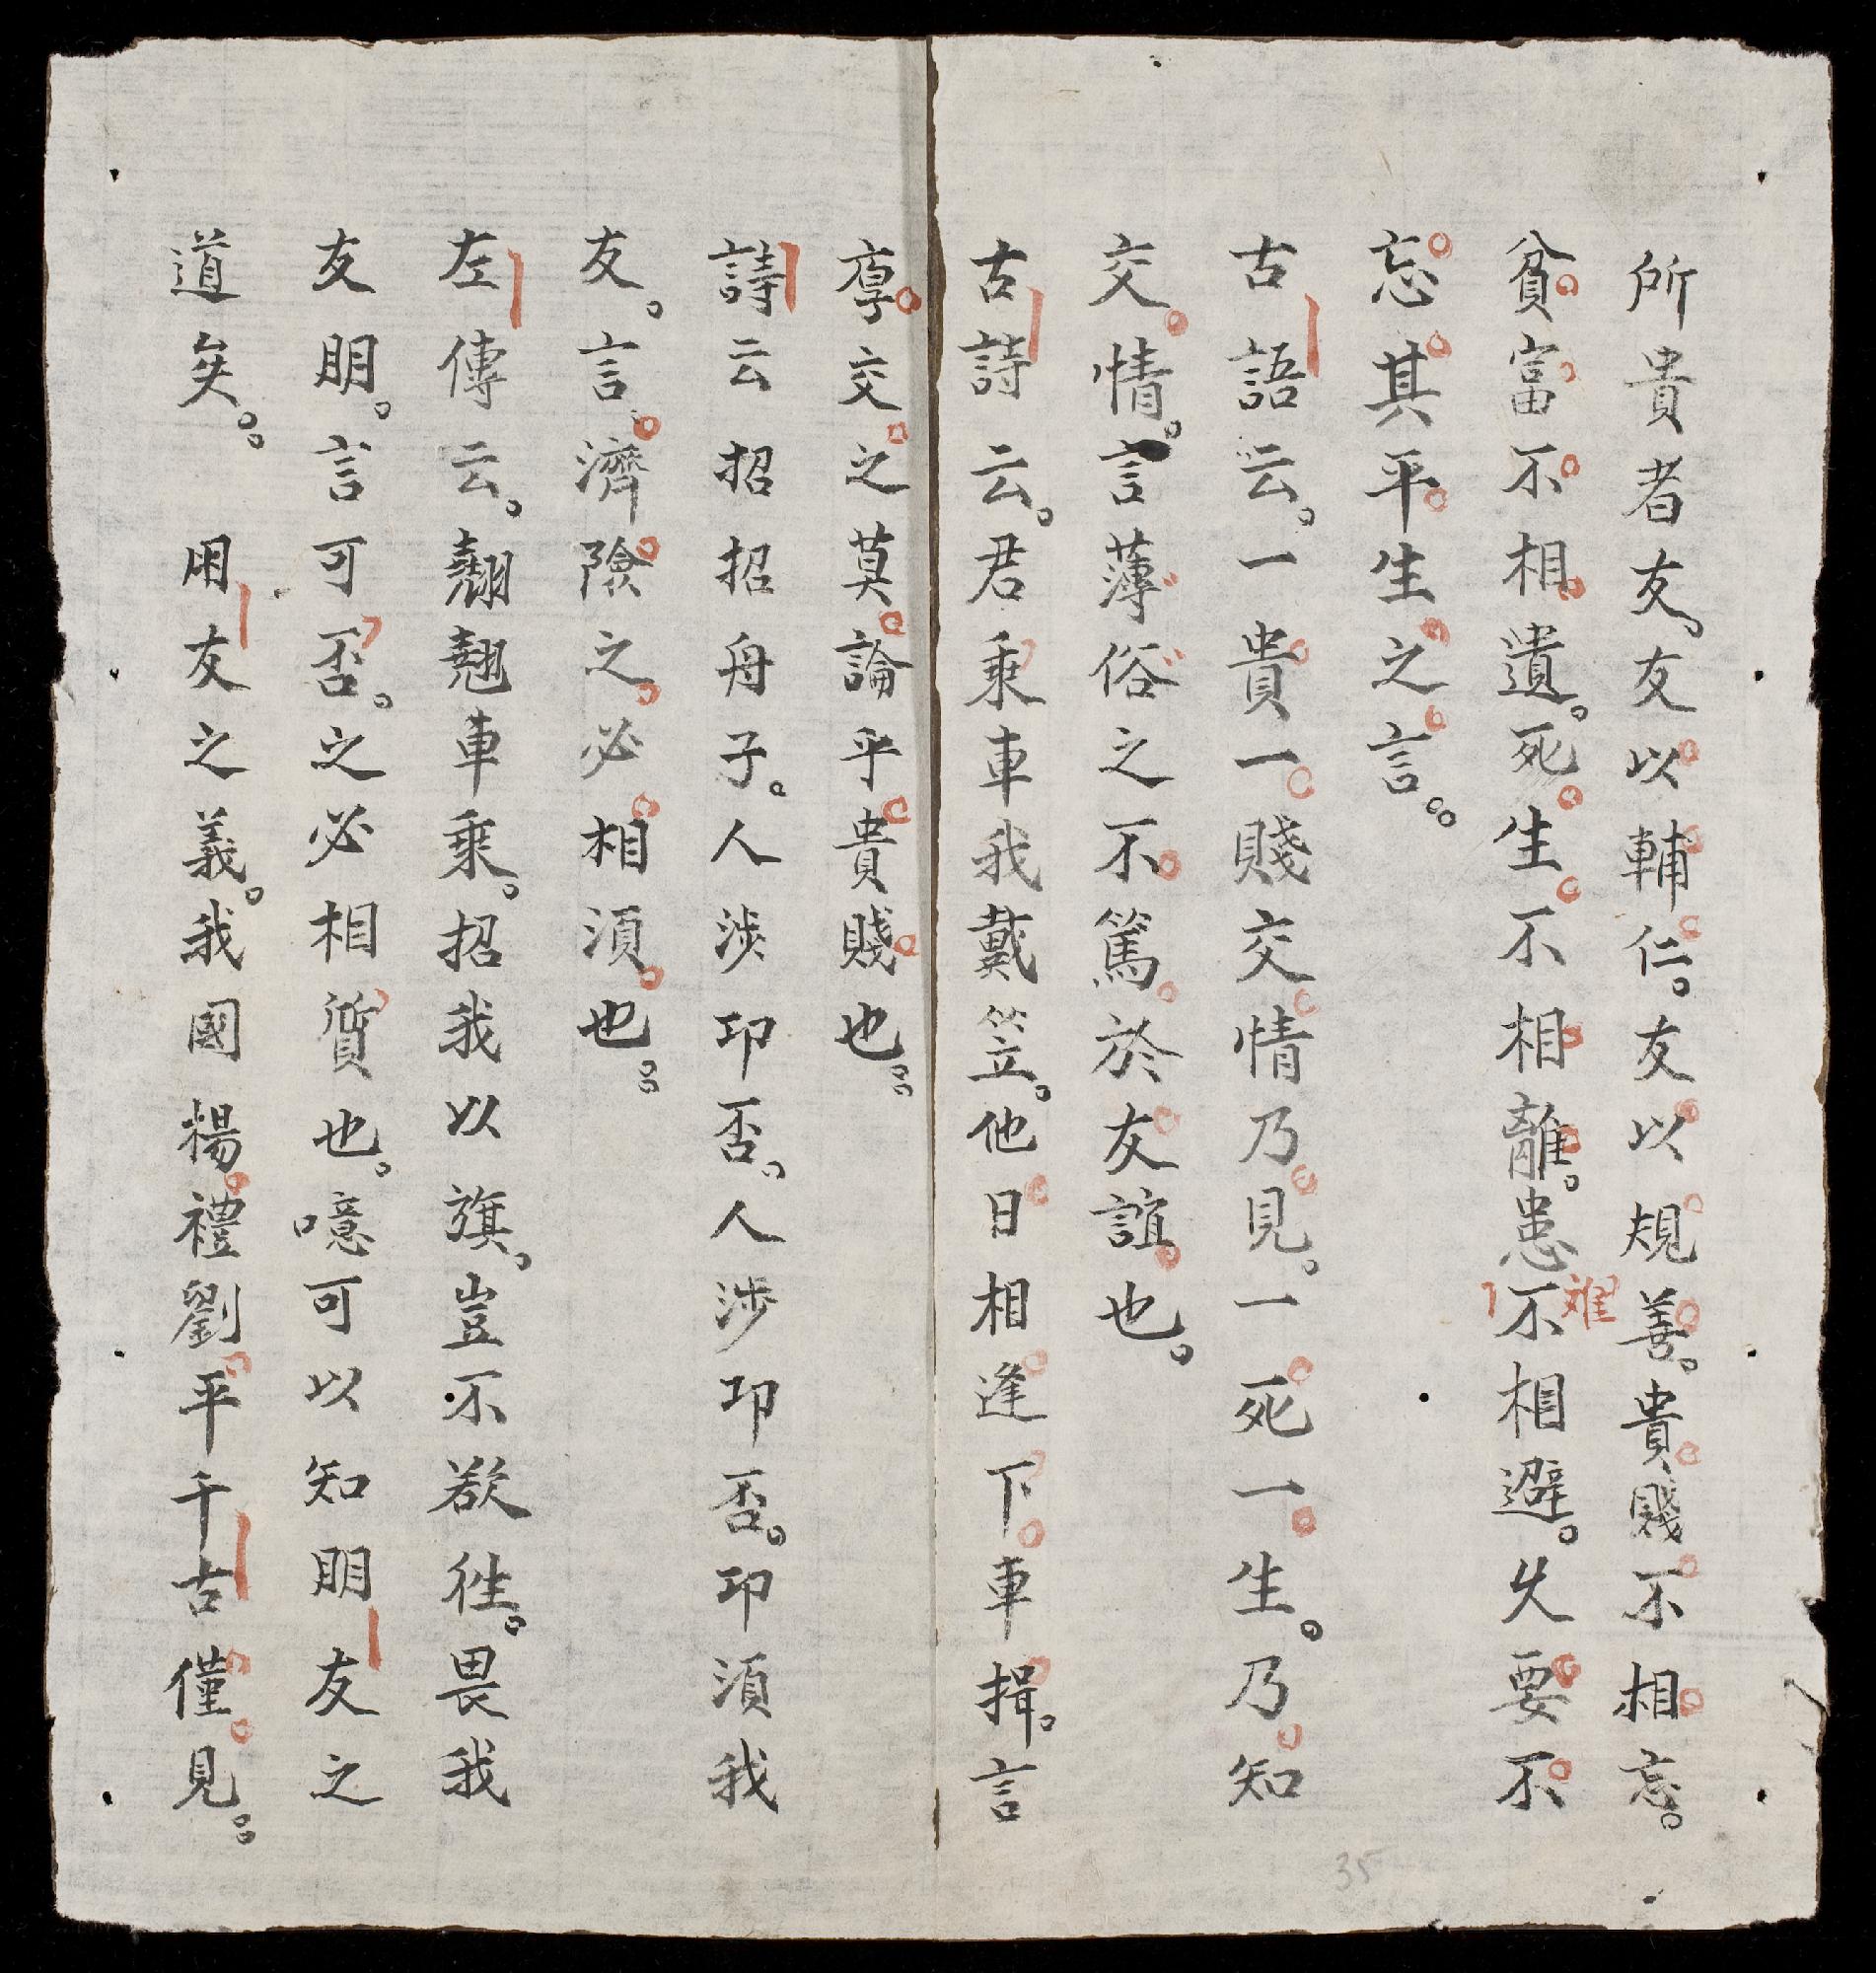 所貴者友。友以輔仁。友以規善。貴賤不相忘。
貧富不相遺。死生不相離。患難不相避。久要不
忘其平生之言。
古語云。一貴一賤交情乃見。一死一生。乃知
交情。言薄俗之不篤於友誼也。
古詩云。君乘車我戴笠。他日相逢下車揖。言
厚交之莫論乎貴賤也。
詩云招招舟子。人涉卬否。人涉卬否。卬須我
友。言濟險之必相須也。
左傳云。翹翹車乘。招我以旗。豈不欲往。畏我
友朋。言可否之必相資也。噫可以知朋友之
道矣。 用友之義。我國楊禮劉平千古僅見。
35